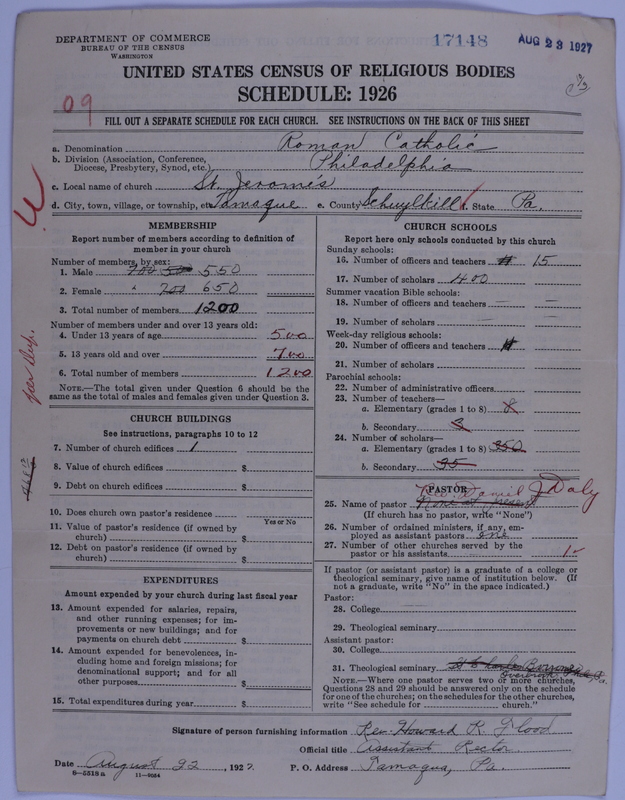 DEPARTMENT OF COMMERCE
BUREAU OF THE CENSUS
WASHINGTON
17148
AUG 23 1927
UNITED STATES CENSUS OF RELIGIOUS BODIES
SCHEDULE: 1926
09
FILL OUT A SEPARATE SCHEDULE FOR EACH CHURCH. SEE INSTRUCTIONS ON THE BACK OF THIS SHEET
a. Denomination Roman Catholic
b. Division (Association, Conference, Diocese, Presbytery, Synod, etc.) Philadelphia
c. Local name of church St. Jerome's
d. City, town, village, or township, etc. Tamaqua e. County Schuylkill f. State Pa.
MEMBERSHIP
Report number of members according to definition of
member in your church
Number of members, by sex:
1. Male 700 500 550
2. Female " 700 650
3. Total number of members 1200
Number of members under and over 13 years old:
4. Under 13 years of age 500
5. 13 years old and over 700
6. Total number of members 1200
NOTE.—The total given under Question 6 should be the
same as the total of males and females given under Question 3.
CHURCH BUILDINGS
See instructions, paragraphs 10 to 12
7. Number of church edifices 1
8. Value of church edifices $
9. Debt on church edifices $
10. Does church own pastor's residence
Yes or No
11. Value of pastor's residence (if owned by
church) $
12. Debt on pastor's residence (if owned by
church) $
EXPENDITURES
Amount expended by your church during last fiscal year
13. Amount expended for salaries, repairs,
and other running expenses; for im-
provements or new buildings; and for
payments on church debt $
14. Amount expended for benevolences, in-
cluding home and foreign missions; for
denominational support; and for all
other purposes $
15. Total expenditures during year $
CHURCH SCHOOLS
Report here only schools conducted by this church
Sunday schools:
16. Number of officers and teachers 15
17. Number of scholars 400
Summer vacation Bible schools:
18. Number of officers and teachers —
19. Number of scholars —
Week-day religious schools:
20. Number of officers and teachers
21. Number of scholars
Parochial schools:
22. Number of administrative officers
23. Number of teachers—
a. Elementary (grades 1 to 8) 8
b. Secondary 3
24. Number of scholars—
a. Elementary (grades 1 to 8) 350
b. Secondary 35
PASTOR
Rev. Daniel J Daly
25. Name of pastor None at present
(If church has no pastor, write "None")
26. Number of ordained ministers, if any, em-
ployed as assistant pastors one
27. Number of other churches served by the
pastor or his assistants
If pastor (or assistant pastor) is a graduate of a college or
theological seminary, give name of institution below. (If
not a graduate, write "No" in the space indicated.)
Pastor:
28. College
29. Theological seminary
Assistant pastor:
30. College
31. Theological seminary St Charles Borromeo
Overbrook, Phila, Pa.
NOTE.—Where one pastor serves two or more churches,
Questions 28 and 29 should be answered only on the schedule
for one of the churches; on the schedules for the other churches,
write "See schedule for church."
Signature of person furnishing information Rev. Howard R. Flood
Official title Assistant Rector
Date August 22, 1927 P. O. Address Tamaqua, Pa.
8—5518a 11—9064